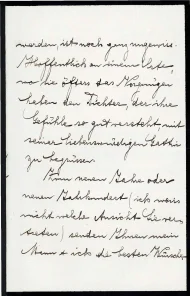 werden, ist noch ganz ungewiss.
Hoffentlich an einem Orte,
wo Sie öfters das Vergnügen
haben den Dichter, der ihre
Gefühle so gut versteht, mit
seiner liebenswürdigen Gattin
zu begrüssen.
Zum neuen Jahre oder
neuen Jahrhundert (ich weiss
nicht welche Ansicht Sie ver-
treten) senden Ihnen mein
Mann & ich die besten Wünsche